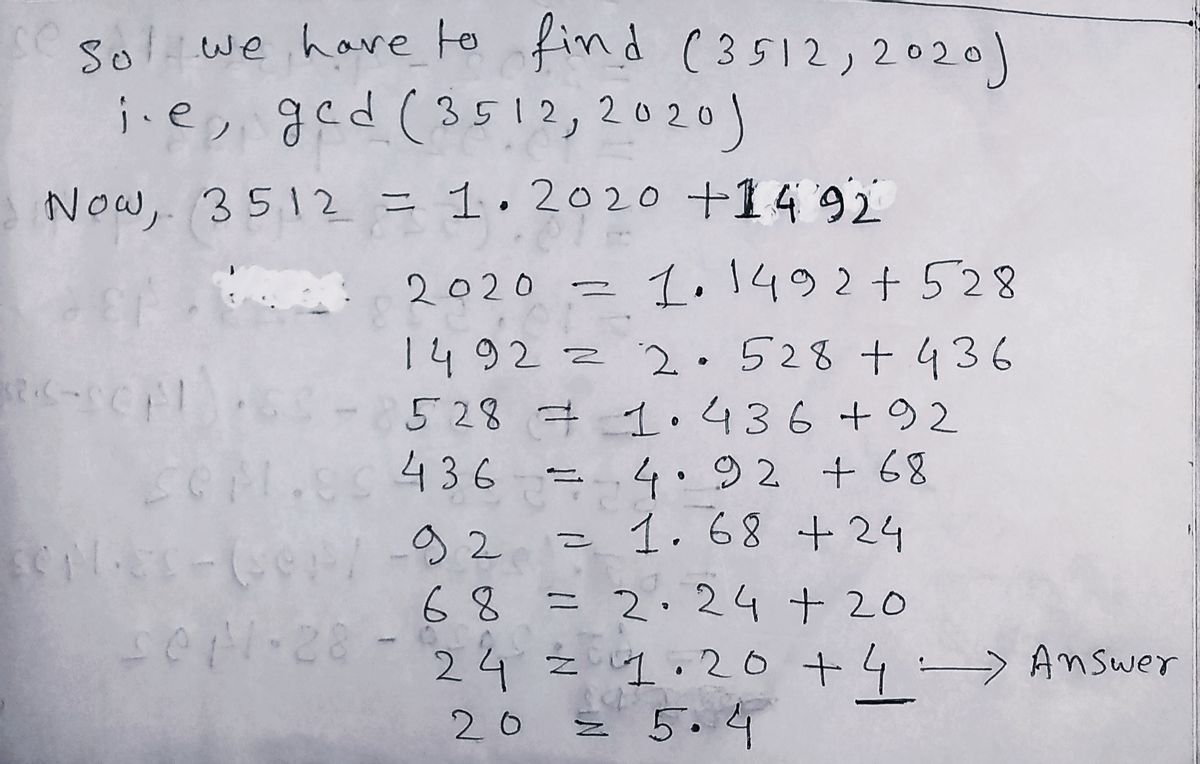 Sol we have to find (3512, 2020)
i.e, gcd (3512, 2020)
Now, 3512 = 1.2020 + 1492
2020 = 1.1492 + 528
1492 = 2.528 + 436
528 = 1.436 + 92
436 = 4.92 + 68
92 = 1.68 + 24
68 = 2.24 + 20
24 = 1.20 + 4 → Answer
20 = 5.4